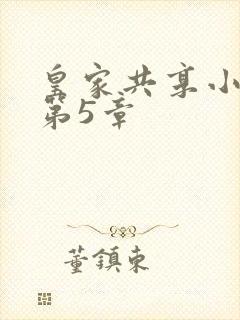 皇家共享小
第5章
董鎮東